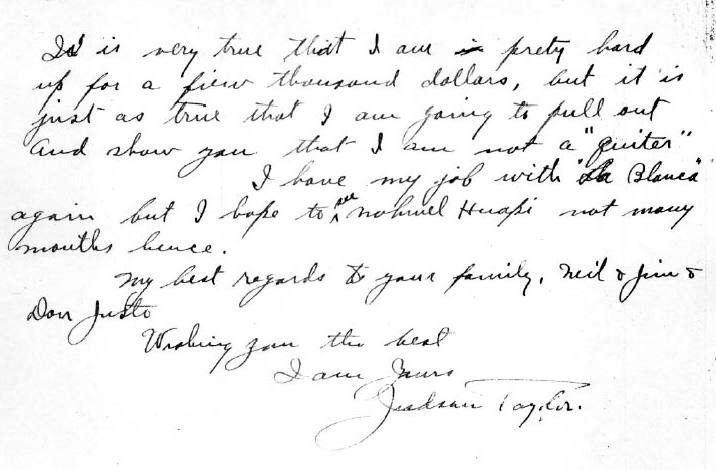 It is very true that I am prety hard
up for a fiew thousand dollars, but it is
just as true that I am going to pull out
and show you that I am not a "quiter"
I have my job with "La Blanca"
again but I hope to see Nahuel Huapi not many
months hence.
My best regards to your family, Neil & Jim &
Don Justo
Wishing you the best
I am Yours
Judson Taylor.